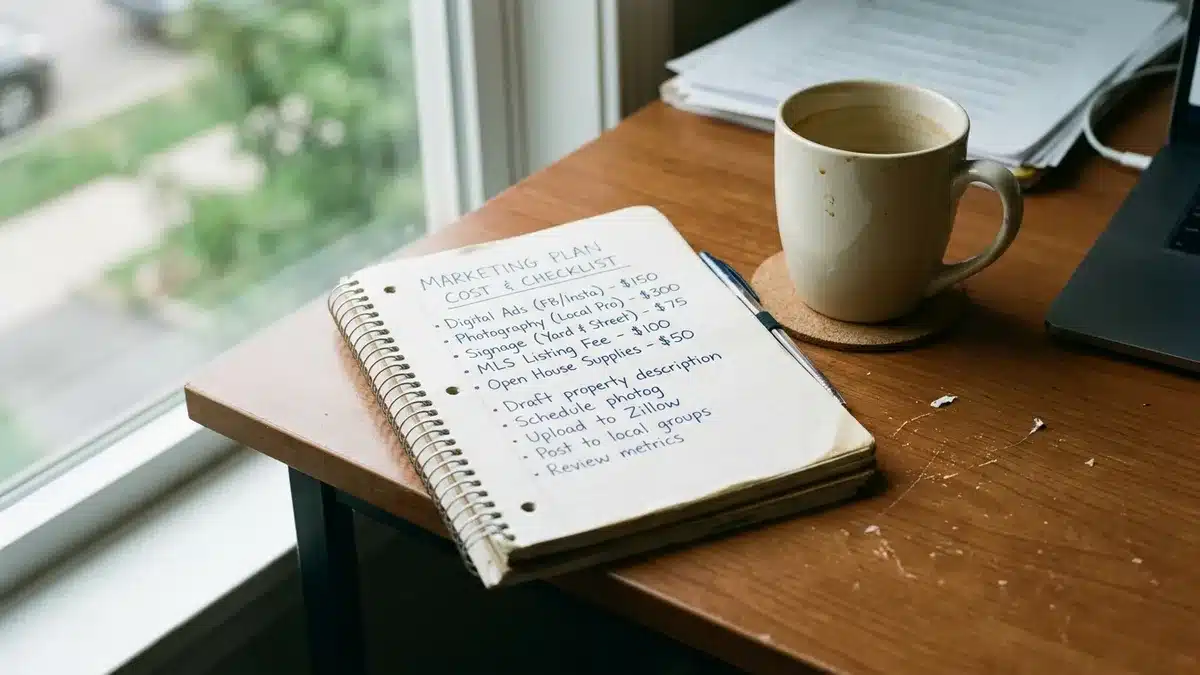 MARKETING PLAN
COST & CHECKLIST
• Digital Ads (FB/Insta) – $150
• Photography (Local Pro) – $300
• Signage (Yard & Street) – $75
• MLS Listing Fee – $100
• Open House Supplies – $50
• Draft property description
• Schedule photog
• Upload to Zillow
• Post to local groups
• Review metrics